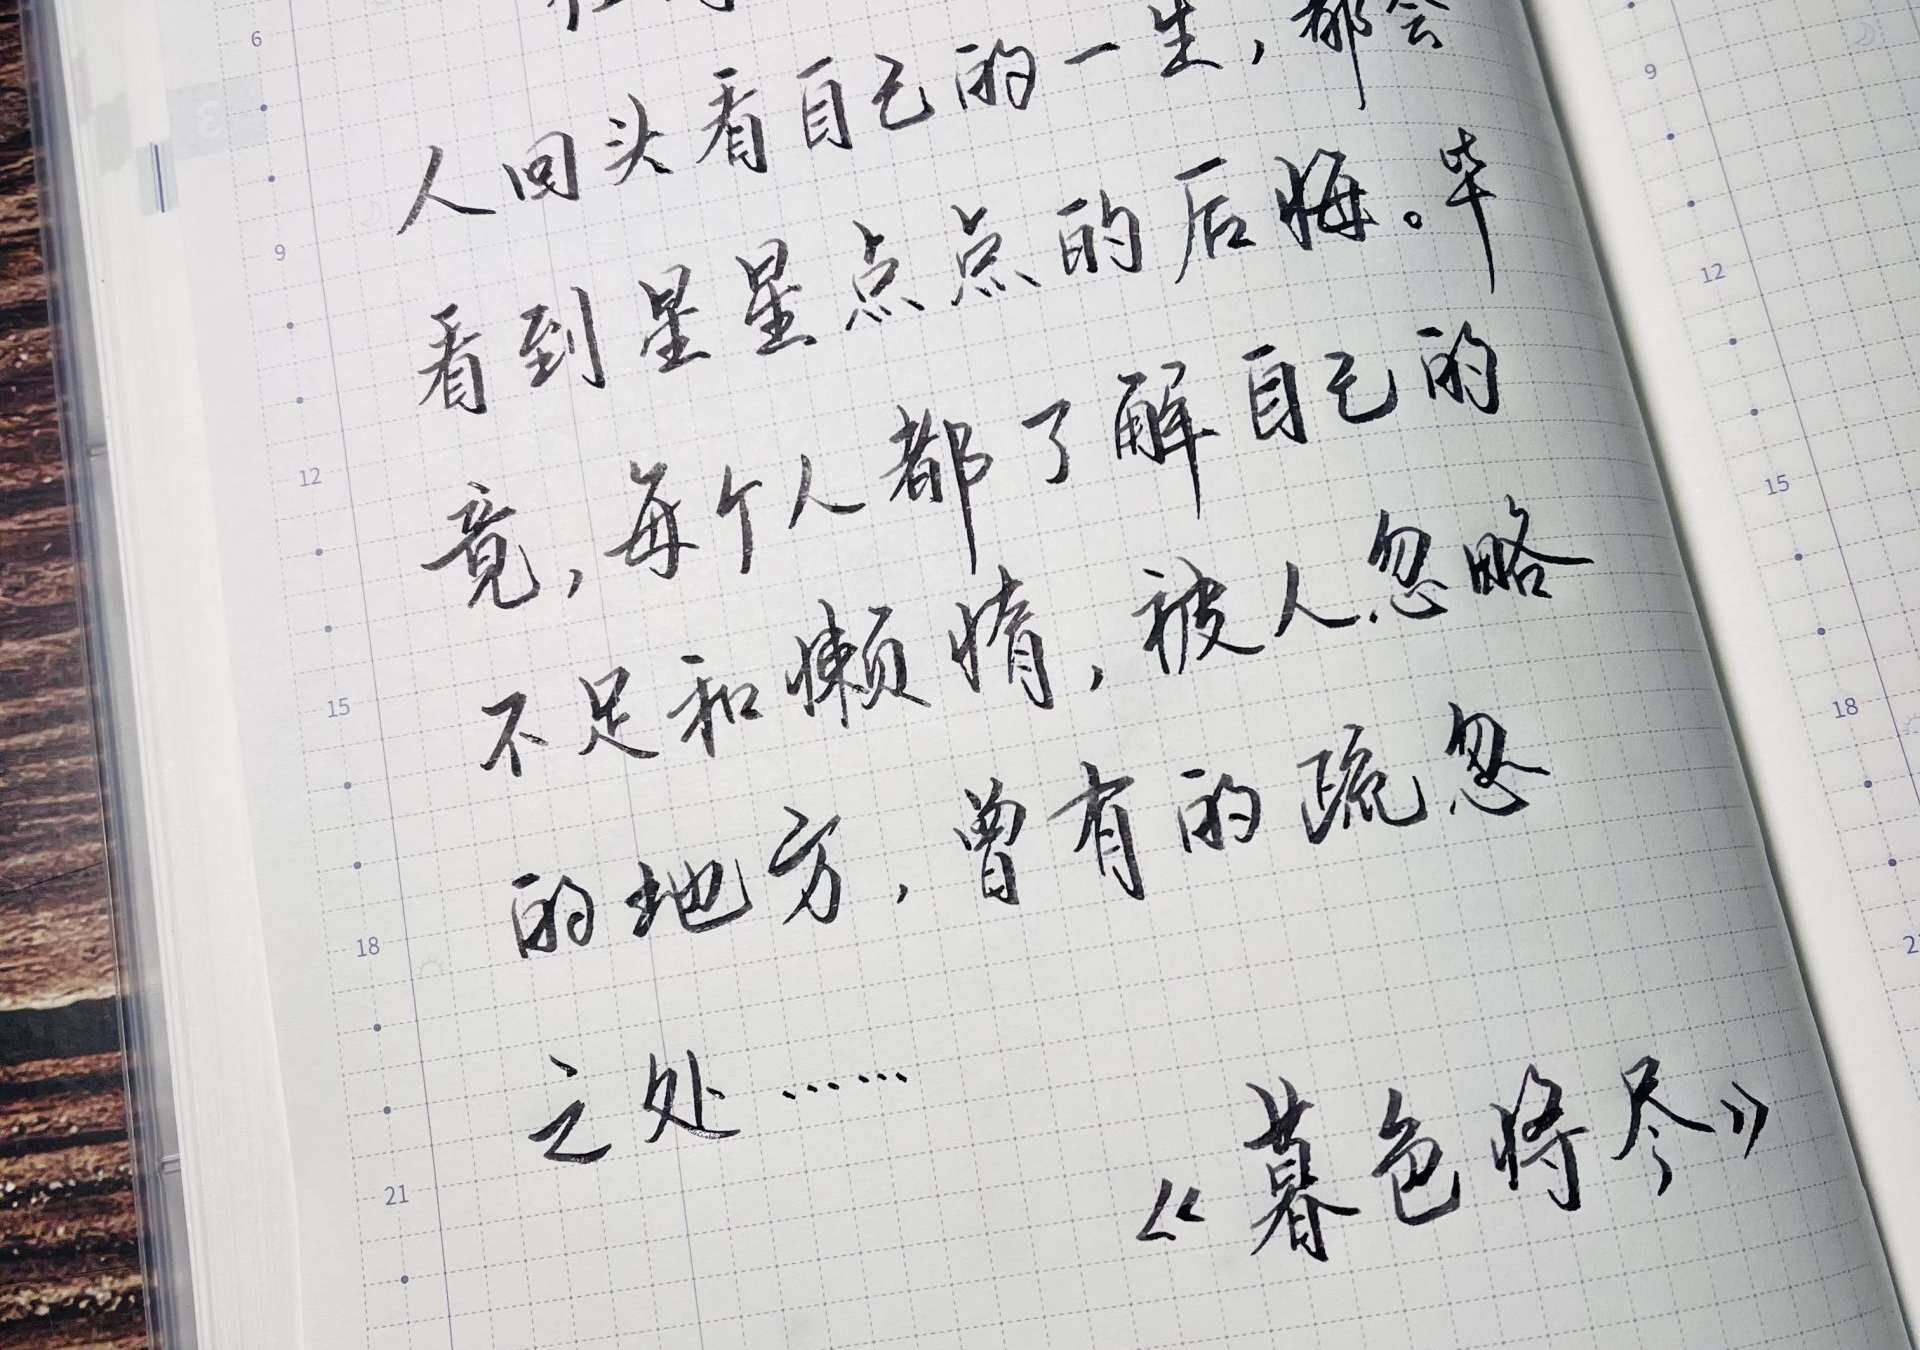 6
人回头看自己的一生，都会
看到星星点点的后悔。毕
竟，每个人都了解自己的
不足和懒惰，被人忽略
的地方，曾有的疏忽
之处……
《暮色将尽》
3
9
12
15
18
21
9
12
15
18
2